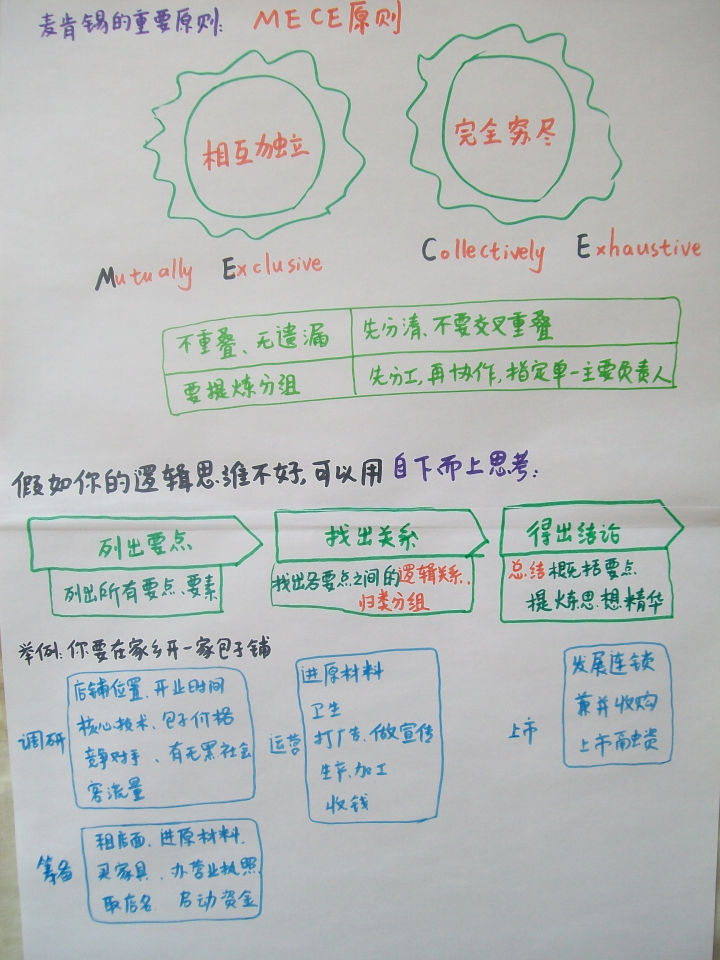 麦肯锡的重要原则: MECE原则
相互独立
完全穷尽
Mutually Exclusive
Collectively Exhaustive
不重叠、无遗漏
先分清、不要交叉重叠
要提炼分组
先分工,再协作,指定单一主要负责人
假如你的逻辑思维不好,可以用自下而上思考:
列出要点
列出所有要点、要素
找出关系
找出各要点之间的逻辑关系,
归类分组
得出结论
总结概括要点
提炼思想精华
举例:你要在家乡开一家包子铺
调研
店铺位置、开业时间
核心技术、包子价格
竞争对手、有无黑社会
客流量
筹备
租店面、进原材料
买家具、办营业执照
取店名 启动资金
运营
进原材料
卫生
打广告、做宣传
生产、加工
收钱
上市
发展连锁
兼并收购
上市融资